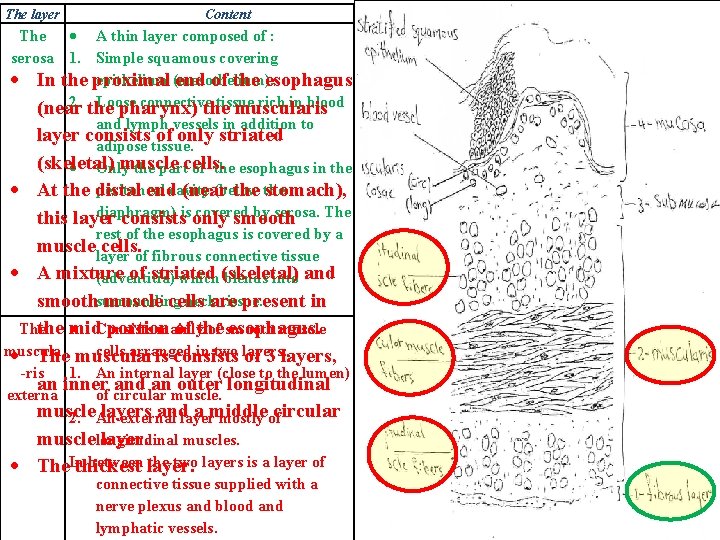 The layer
Content
The serosa
• A thin layer composed of :
1. Simple squamous covering
epithelium
2. Loose connective tissue rich in blood
and lymph vessels in addition to
adipose tissue.
• Only the part of the esophagus in the
diaphragm) is covered by serosa. The
rest of the esophagus is covered by a
layer of fibrous connective tissue
(adventitia) which blends into
surrounding
The muscula
-ris
externa
cells arranged in two layers
1. An internal layer (close to the lumen)
of circular muscle.
2. An external layer mostly of
longitudinal muscles.
In between the two layers is a layer of
connective tissue supplied with a
nerve plexus and blood and
lymphatic vessels.
• In the proximal end of the esophagus
(near the pharynx) the muscularis
layer consists of only striated
(skeletal) muscle cells.
• At the distal end (near the stomach),
this layer consists only smooth
muscle cells.
• A mixture of striated (skeletal) and
smooth muscle cells are present in
the mid portion of the esophagus.
• The muscularis consists of 3 layers,
an inner and an outer longitudinal
muscle layers and a middle circular
muscle layer.
• The thickest layer.
stratified squamous
epithelium
blood vessel
uscularis
cosae
(circ)
(long)
4- mucosa
3- Submucosa
itudinal
scle fibers
cular muscle
fibers
2- muscularis
tudinal
scle fibers
1- fibrous layer